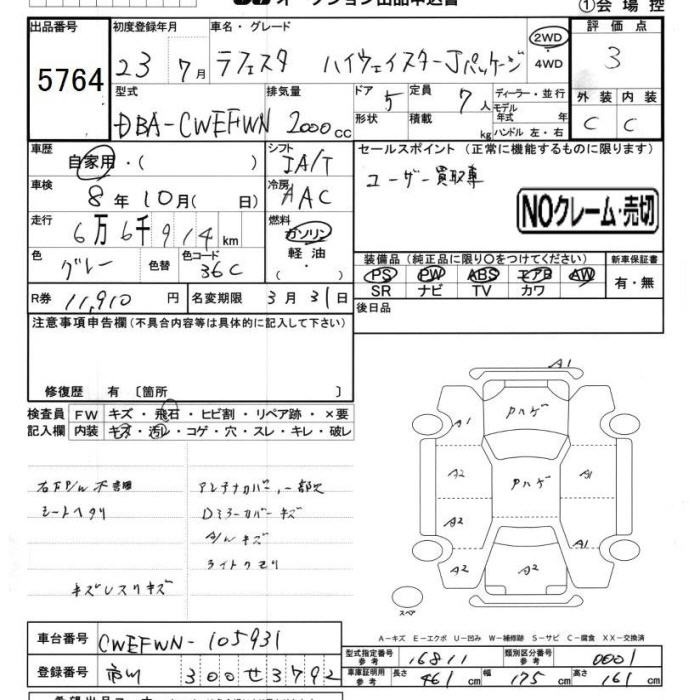 オークション出品申込書
①会場控
出品番号
5764
初度登録年月
23 7月
車名・グレード
ラフェスタ ハイウェイスターJパッケージ
2WD
・4WD
評価点
3
型式
DBA-CWEFWN
排気量
2000cc
ドア
5
定員
7人
形状
積載
kg
ディーラー・並行
モデル年式 年
ハンドル 左・右
外装
内装
C
C
車歴
自家用・( )
シフト
IA/T
セールスポイント (正常に機能するものに限ります)
ユーザー買取車
NOクレーム・売切
車検
8年10月( 日)
冷房
AAC
走行
6万6千914km
燃料
ガソリン
軽油
・( )
色
グレー
色替
色コード
36C
装備品(純正品に限り○をつけてください)
PS PW ABS エアB AW
SR ナビ TV カワ
新車保証書
有・無
R券
11,910円
名変期限
3月31日
後日品
注意事項申告欄(不具合内容等は具体的に記入して下さい)
修復歴 有 〔箇所 〕
検査員
記入欄
FW キズ・飛石・ヒビ割・リペア跡・×要
内装 キズ・汚レ・コゲ・穴・スレ・キレ・破レ
シートヘタリ
アンテナカバー一部欠
Dミラーカバーキズ
A/Wキズ
ライトクモリ
キズレスリキズ
A1
A1
Pハゲ
A2
Pハゲ
A1
A2
A1
A2
A2
A2
スペア
A-キズ E-エクボ U-凹み W-補修跡 S-サビ C-腐食 XX-交換済
車台番号
CWEFWN-105931
登録番号
市川 300せ3792
型式指定番号
参考
16811
類別区分番号
参考
0001
車庫証明用
参考
長さ 461cm
幅 175cm
高さ 161cm